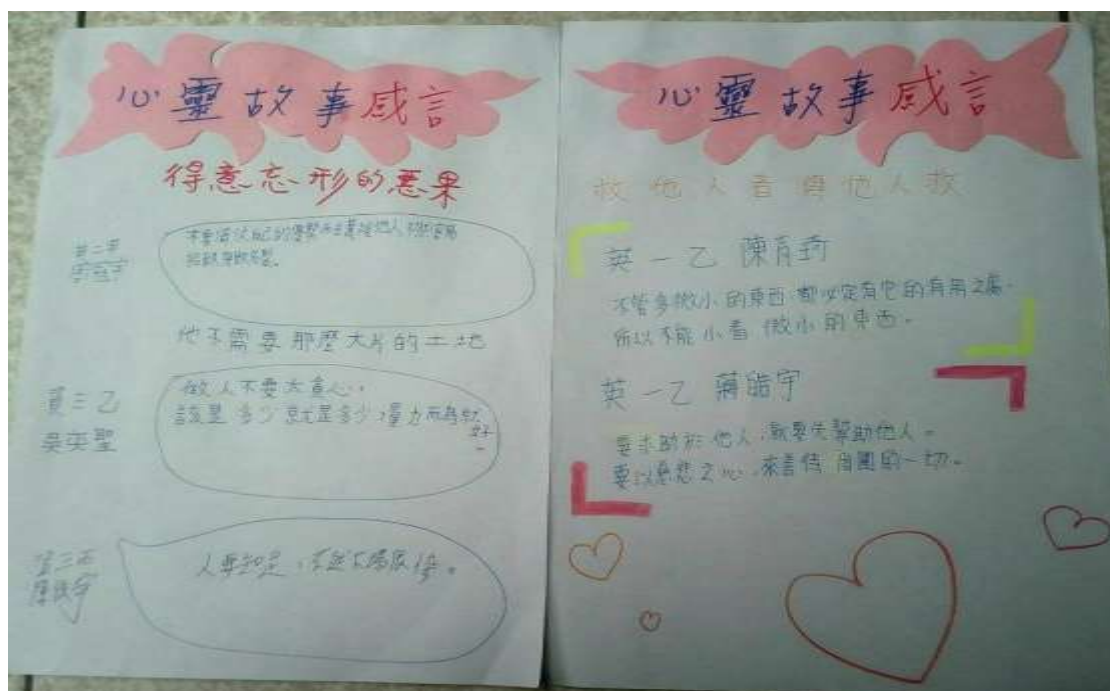 心靈故事感言
得意忘形的惡果
不要因為自己的優勢而去
他不需要那麼大片的土地
吳英聖
做人不要太貪心,
該是多少就是多少,量力而為就好。
人要知足,不然下場很慘。
心靈故事感言
救他人者與他人救
英一乙 陳肯琦
不管多微小的東西,都必定有它的有用之處。
所以不能小看微小的東西。
英一乙 蔣皓宇
要求助於他人,就要先幫助他人。
要以慈悲之心,來善待周圍的一切。